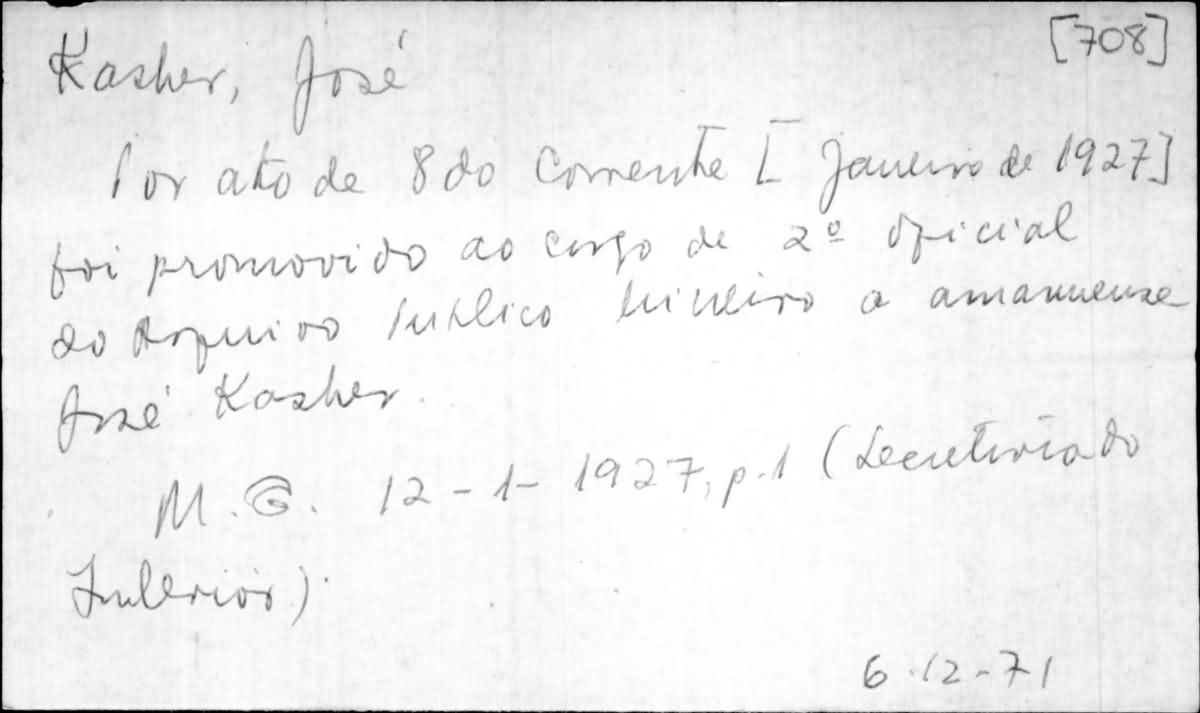 [708]
Kasher, José
Por ato de 8 do corrente [Janeiro de 1927]
foi promovido ao cargo de 2º oficial
do Arquivo Publico Mineiro o amanuense
José Kasher.
M.G. 12-1-1927, p.1 (Secretaria do
Interior).
6.12-71